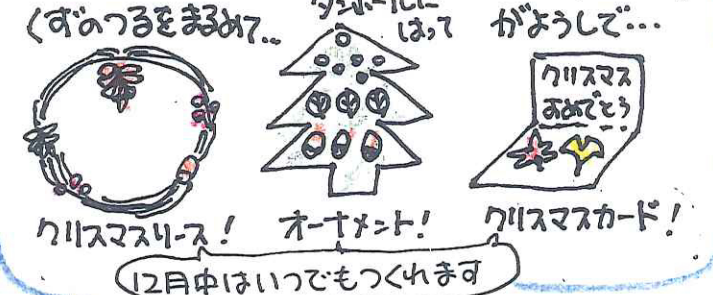 くずのつるをまるめて…
ダンボールに
はって
がようしで…
クリスマス
おめでとう
クリスマスリース!
オーナメント!
クリスマスカード!
12月中はいつでもつくれます